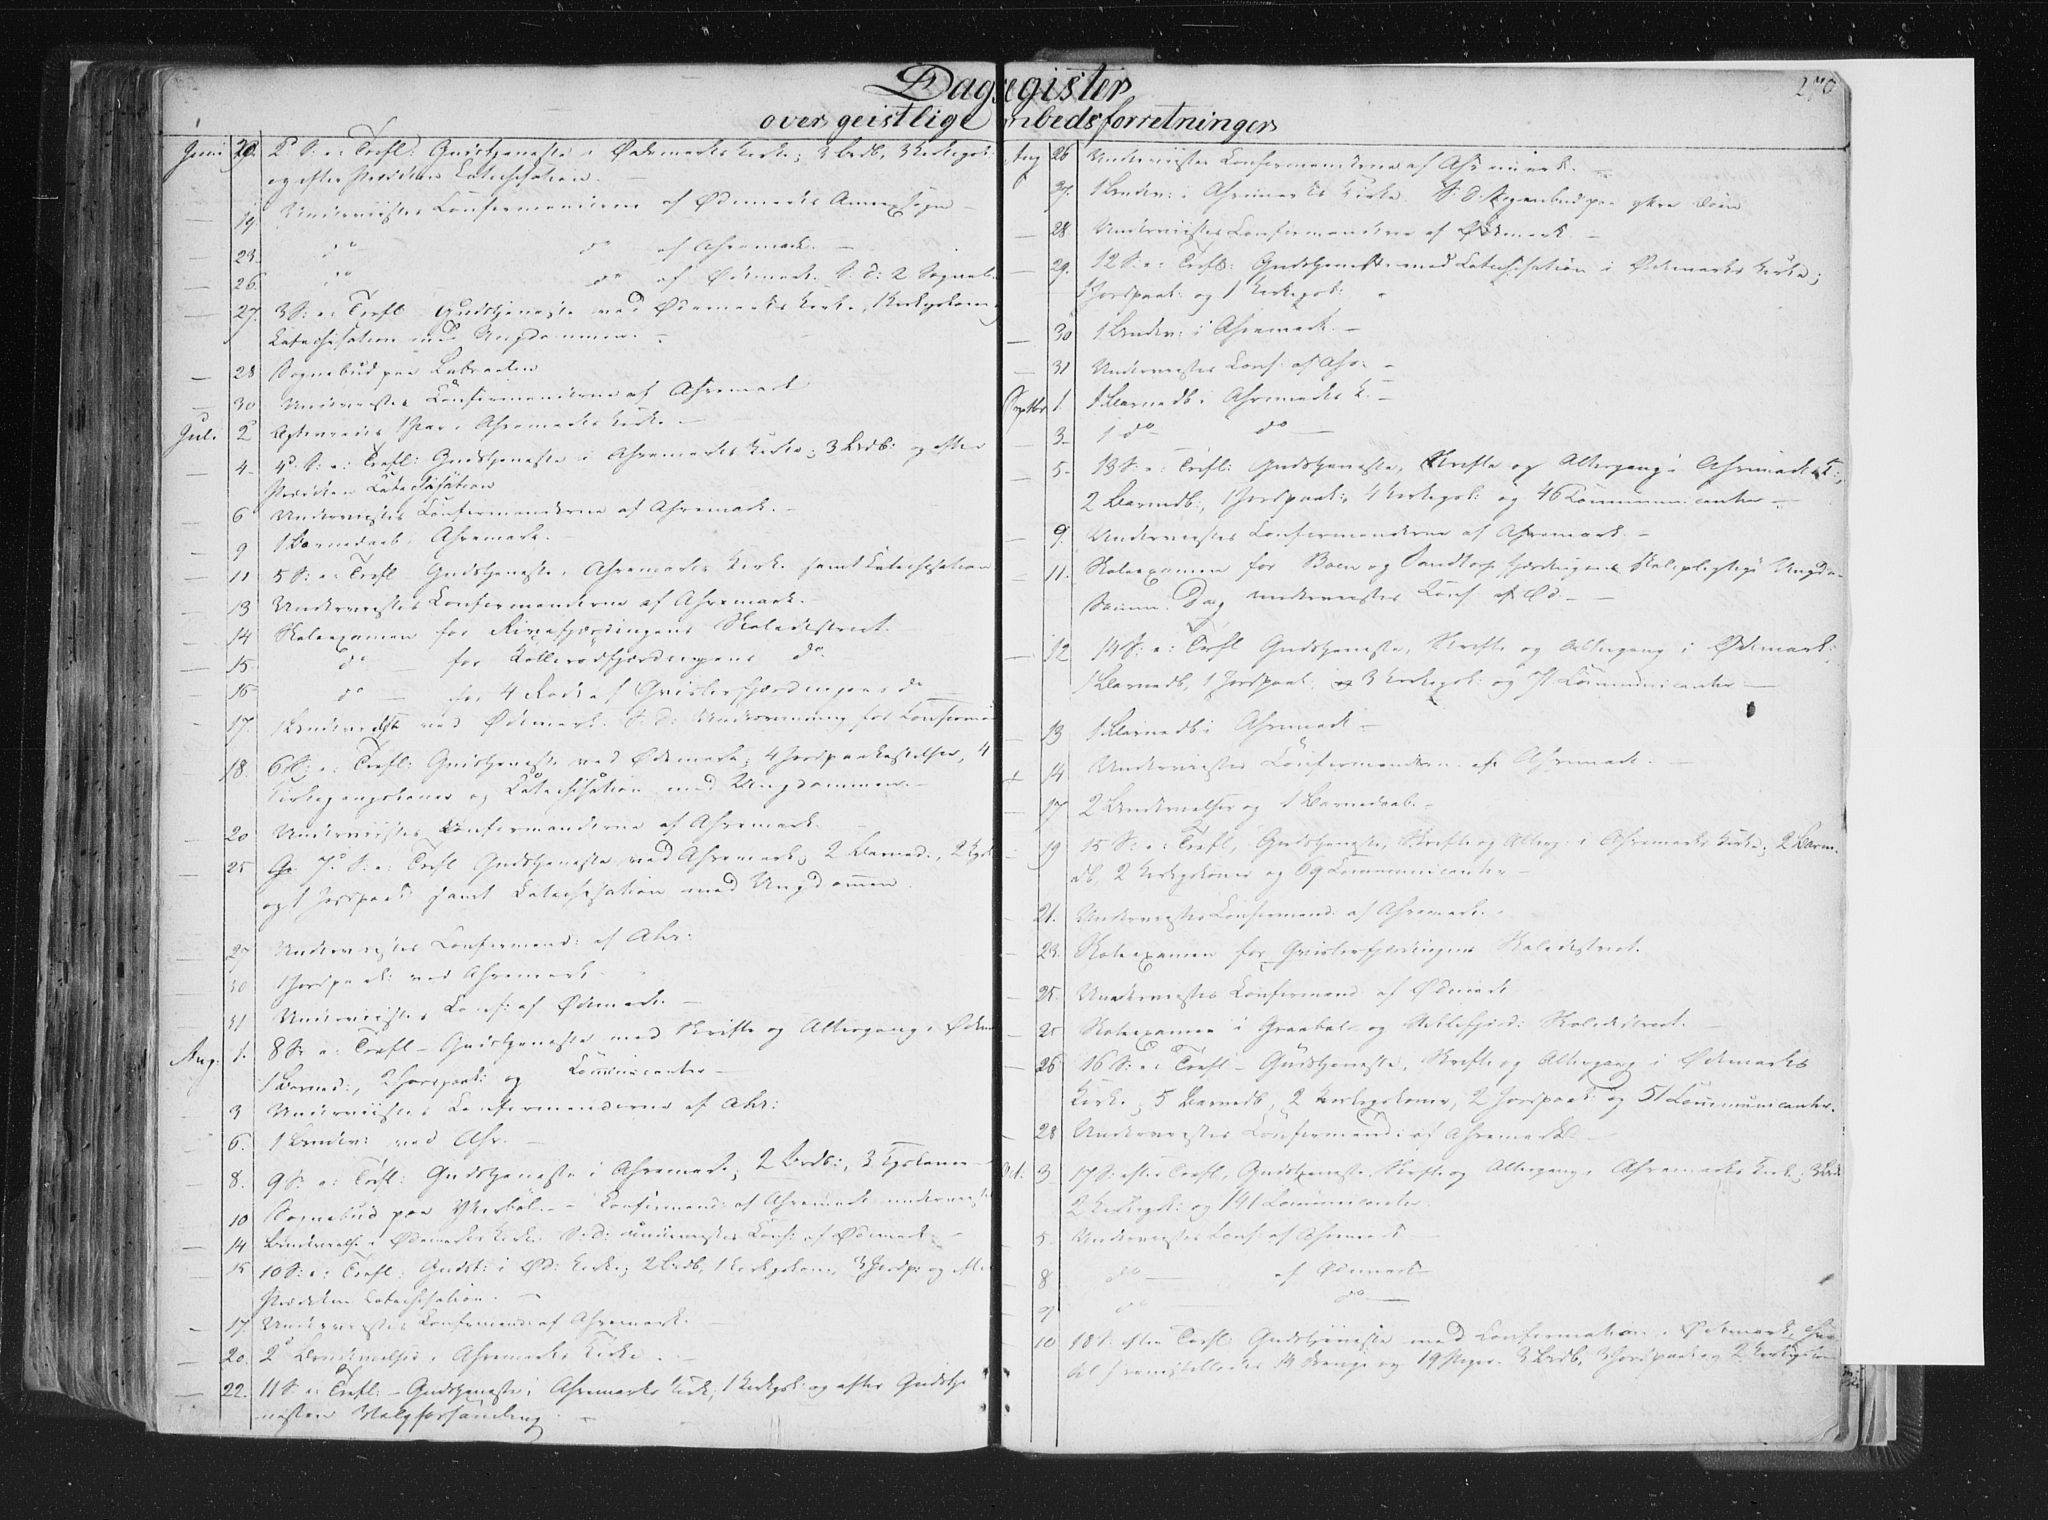 Dagregister
270
over geistlige Embedsforretninger
Juni 20. 2. S: e: Trefl: Gudstjeneste i Ødemarks Kirke; 3 Brdb, 3 Kirkegsk:
og efter Prædiken Catechisation. —
19. Underviistes Confirmanderne af Ødemarks Annexsogn —
23. do do af Ahremark. —
26. do do af Ødemark. S. d: 2 Sogneb.
27. 3 S: e: Trefl Gudstjeneste ved Ødemarks Kirke, 1 Kirkegskone,
Catechisation med Ungdommen. —
28 Sognebud paa
30 Underviistes Confirmanderne af Ahremark
Juli 2 1 Par i Ahremarks Kirke —
4. 4. S: e: Trefl: Gudstjeneste i Ahremarks Kirke; 3 Brdb: og efter
Prædiken Catechisation
6 Underviistes Confirmanderne af Ahremark. —
9 1 Barnedaab i Ahremark. —
11. 5 S: e: Trefl Gudstjeneste i Ahremarks Kirke samt Catechisation
13 Underviistes Confirmanderne af Ahremark. —
14 Skoleexamen for fjerdingens Skoledistrict. —
15. do — for Kollerødfjerdingens do.
16 do — for 4 Rode af Gvisterfjerdingens do
17. 1 ved Ødemark. S. d: Underviisning for Confirm
18. 6 S: e: Trefl: Gudstjeneste ved Ødemark; 4 Jordpaakastelser, 4
Kirkegangskoner og Catechisation med Ungdommen. —
20 Underviistes Confirmanderne af Ahremark. —
25 7. S: e: Trefl Gudstjeneste ved Ahremark; 2 Barned:, 2 Kgk
og 1 Jordpaak: samt Catechisation med Ungdommen.
27 Underviistes Confirmand: af Ahr:
30 1 Jordpaak: ved Ahremark —
31 Underviistes Conf: af Ødemark. —
Aug. 1. 8 S: e: Trefl — Gudstjeneste med Skrifte og Altergang i Ødem
1 Barned:, 2 Jordpaak: og Communicanter —
3 Underviistes Confirmanderne af Ahr:
6. 1 Begrav: ved Ahr. —
8. 9 S. e: Trefl: Gudstjeneste i Ahremark; 2 Brdb:, 3 Kgskoner —
10 Sognebud paa — Confirmand: af Ahremark underviistes
14. Begravelse i Ødemarks Kirke. S. d: underviistes Conf: af Ødemark. —
15 10 S: e: Trefl: Gudst: i Ød: Kirke; 2 Brdb, 1 Kirkegskone, 3 Jordp: og efter
Prædiken Catechisation. —
17. Underviistes Confirmand: af Ahremark. —
20. 2 Begravelser i Ahremarks Kirke. —
22. 11 S. e: Trefl: — Gudstjeneste i Ahremarks Kirke; 1 Kirkegsk: og efter Gudstje
nesten Valgforsamling. —
Aug 26 Underviistes Confirmanderne af Ahremark. —
27. 1 Begrav: i Ahremarks Kirke. S. d. Sognebud paa
28. Underviistes Confirmanderne af Ødemark. —
29. 12 S: e: Trefl: Gudstjeneste med Catechisation i Ødemarks Kirke;
1 Jordpaak: og 1 Kirkegsk: —
30 1 Begrav: i Ahremark. —
31 Underviistes Conf: af Ahr: —
Septbr 1. 1 Barnedb i Ahremarks K. —
3. 1 do — do —
5. 13 S: e: Trefl: Gudstjeneste, Skrifte og Altergang i Ahremarks K:,
2 Barnedb:, 1 Jordpaak:, 4 Kirkegsk: og 46 Communicanter —
9. Underviistes Confirmanderne af Ahremark. —
11. Skoleexamen for Boen og Sandtorp fjerdingens Skolepligtige Ungdom.
Samme Dag underviistes Conf af Ød. —
12 14 S: e: Trefl Gudstjeneste, Skrifte og Altergang i Ødemark:
1 Barnedb, 1 Jordpaak: 3 Kirkegsk: og 71 Communicanter —
13 1 Barnedb i Ahremark —
14 Underviistes Confirmanderne af Ahremark. —
17 2 Begravelser og 1 Barnedaab. —
19 15 S: e: Trefl, Gudstjeneste, Skrifte og Alterg: i Ahremarks Kirke; 2 Barne
db, 2 Kirkegskoner og 69 Communicanter —
21. Underviistes Confirmand: af Ahremark. —
23. Skoleexamen for Gvisterfjerdingens Skoledistrict.
25. Underviistes Confirmand af Ødemark —
25 Skoleexamen i Skoledistrict. —
26 16 S: e: Trefl — Gudstjeneste, Skrifte og Altergang i Ødemarks
Kirke, 5 Barnedb, 2 Kirkegskoner, 2 Jordpaak: og 51 Communicanter.
28 Underviistes Confirmand: af Ahremark. —
Oct. 3 17 S: efter Trefl, Gudstjeneste, Skrifte og Altergang i Ahremarks Kirke; 3 Brdb
2 Kirkegsk: og 141 Communicanter.
5. Underviistes Conf: af Ahremark —
8 do — af Ødemark —
9 do — do —
10 18 S. efter Trefl: Gudstjeneste med Confirmation i Ødemark, hvor
til fremstilledes 14 Drenge og 19 Piger. 3 Brdb, 3 Jordpaak og 2 Kirkegskoner